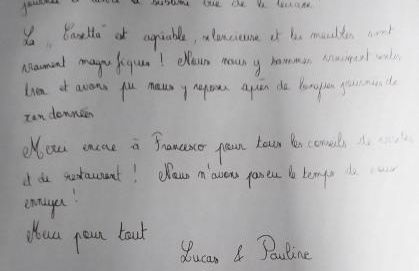 journée et avoir la sublime vue de la terrasse
La "Casetta" est agréable, silencieuse et les meubles sont
vraiment magnifiques ! Nous nous y sommes vraiment sentis
bien et avons pu nous y reposer après de longues journées de
randonnées
Merci encore à Francesco pour tous les conseils de visites
et de restaurant ! Nous n'avons pas eu le temps de nous
ennuyer !
Merci pour tout
Lucas & Pauline